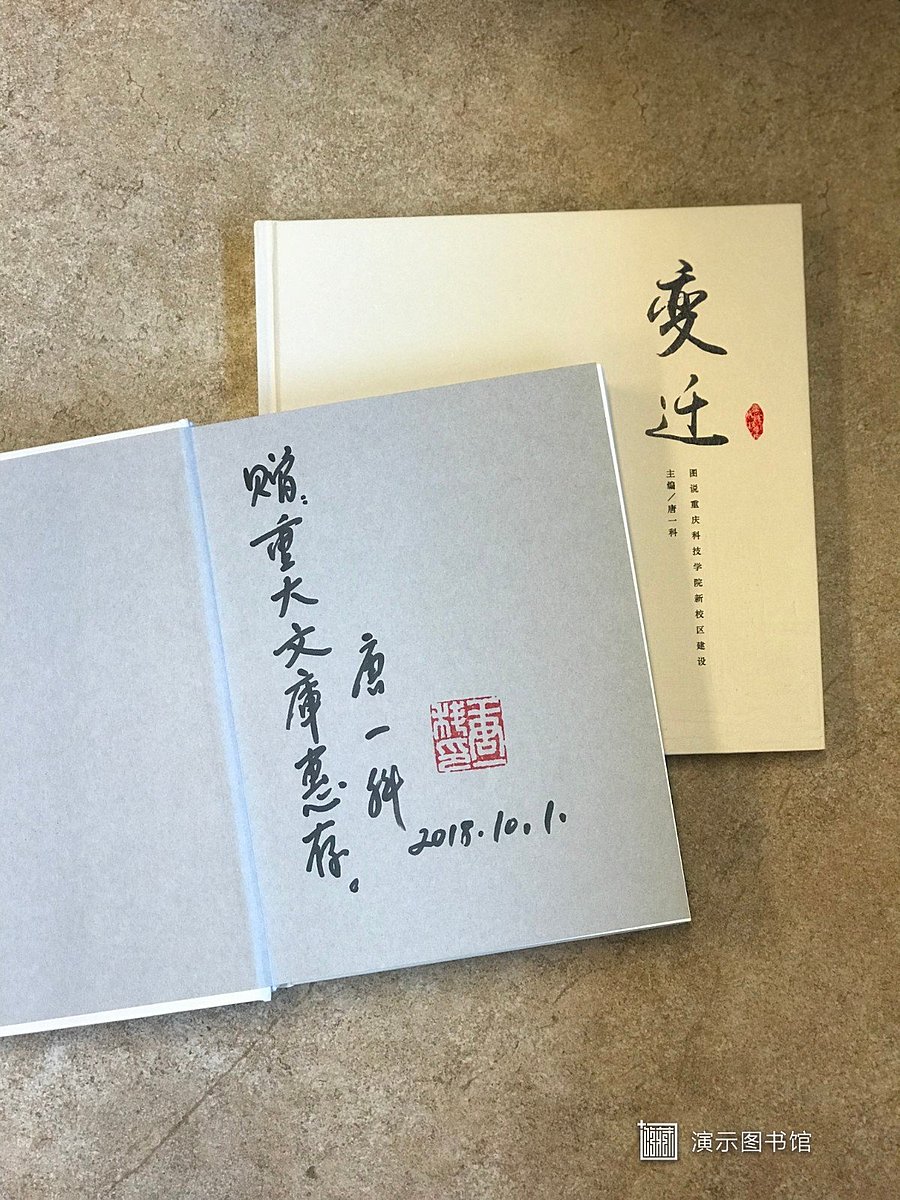 变迁
图说重庆科技学院新校区建设
主编/唐一科
赠:重大文庫惠存。
唐一科
2018.10.1.
演示图书馆